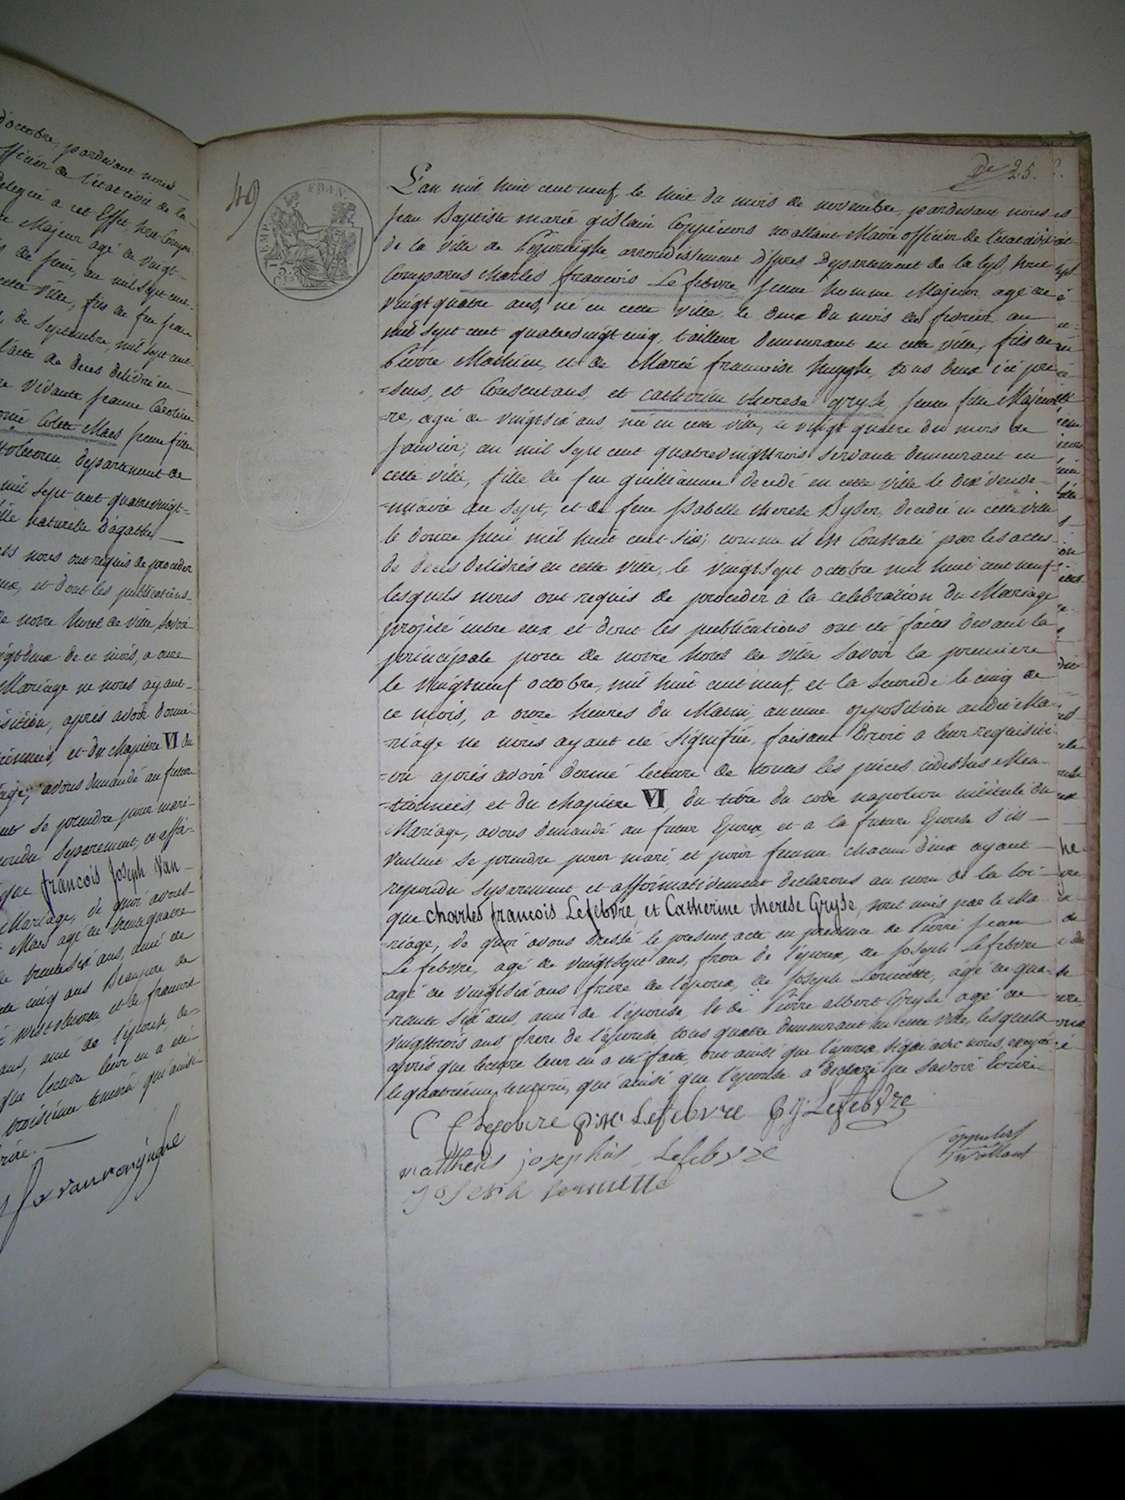 d'octobre, pardevant nous
officier de l'état civil de la
delegué a cet Effet sont Comparus
Majeur agé de vingt-
de juin, au mil sept cent
cette ville, fils de feu jean
de Septembre, mil sept cent
l'acte de deces delivré en
vivante jeanne Caroline
Colette Maes jeune fille
département de
mil sept cent quatrevingt-
fille naturelle d'agathe
nous ont requis de proceder
eux, et dont les publications
de notre hotel de ville, savoir
de ce mois, a onze
Mariage ne nous ayant
après avoir donné
et du chapitre VI du
avons demandé au futur
se prendre pour mari
repondu Separement, et affir-
que francois Joseph Van
Mariage, de quoi avons
Maes agé de trente quatre
trente six ans, ami de
cinq ans
et de francois
ans, ami de l'épouse, les-
que lecture leur en a été
troisième temoin qui ainsi
49
De 25.
L'an mil huit cent neuf, le huit du mois de novembre, pardevant nous
jean Baptiste marie gislain Coppieters Wallant Maire officier de l'état civil
de la ville de Poperinghe, arrondissement d'Ypres Departement de la Lys, sont
Comparus charles francois Lefebvre jeune homme Majeur agé de
vingt quatre ans, né en cette ville le deux du mois de fevrier au
mil sept cent quatrevingt cinq, tailleur demeurant en cette ville, fils de
Pierre Mathieu, et de Marie francoise huyghe, tous deux ici pre
=sens, et Consentans, et catherine therese gryse, jeune fille Majeu
=re, agée de vingtsix ans née en cette ville, le vingt quatre du mois de
janvier, au mil sept cent quatrevingttrois servante demeurant en
cette ville, fille de feu guillianne decedé en cette ville le dix vende-
=miaire an sept, et de feue Isabelle therese Dyser, decedée en cette ville
le douze juin mil huit cent six, comme il est Constaté par les actes
de deces delivrés en cette ville, le vingtsept octobre mil huit cent neuf
lesquels nous ont requis de proceder à la celebration du Mariage
projeté entre eux et dont les publications ont été faites devant la
principale porte de notre hotel de ville Savoir la premiere
le vingtneuf octobre, mil huit cent neuf, et la seconde le cinq de
ce mois, a onze heures du Matin, aucune opposition audit Ma-
riage ne nous ayant été Signifiée, faisant droit a leur requisiti-
on après avoir donné lecture de toutes les pièces cidessus Men-
=tionnées, et du chapitre VI, du titre du code napoleon intitulé du
Mariage, avons demandé au futur Epoux, et a la future Epouse s'ils
veulent se prendre pour mari, et pour femme chacun d'eux ayant
repondu Separement et affirmativement declarons au nom de la loi
que charles francois Lefebvre, et Catherine therese Gryse, sont unis par le Ma
=riage, de quoi avons dressé le present acte en presence de Pierre jean
Lefebvre, agé de vingtsept ans, frere de l'époux, de Joseph Lefebvre
agé de vingtsix ans frère de l'époux, de Joseph Vermeille, agé de qua-
rante six ans, ami de l'épouse, Et de Pierre albert Gryse agé de
vingttrois ans, frere de l'épouse, tous quatre demeurant en cette ville, lesquels
après que lecture leur en a été faite, ont ainsi que l'époux, signé avec nous, excepté
le quatrième temoin, qui ainsi que l'épouse a declaré ne savoir Ecrire
C f Lefebvre P: M: Lefebvre P J Lefebvre
mattheus josephus Lefebvre
Joseph Vermeille
Coppieters
Wallant